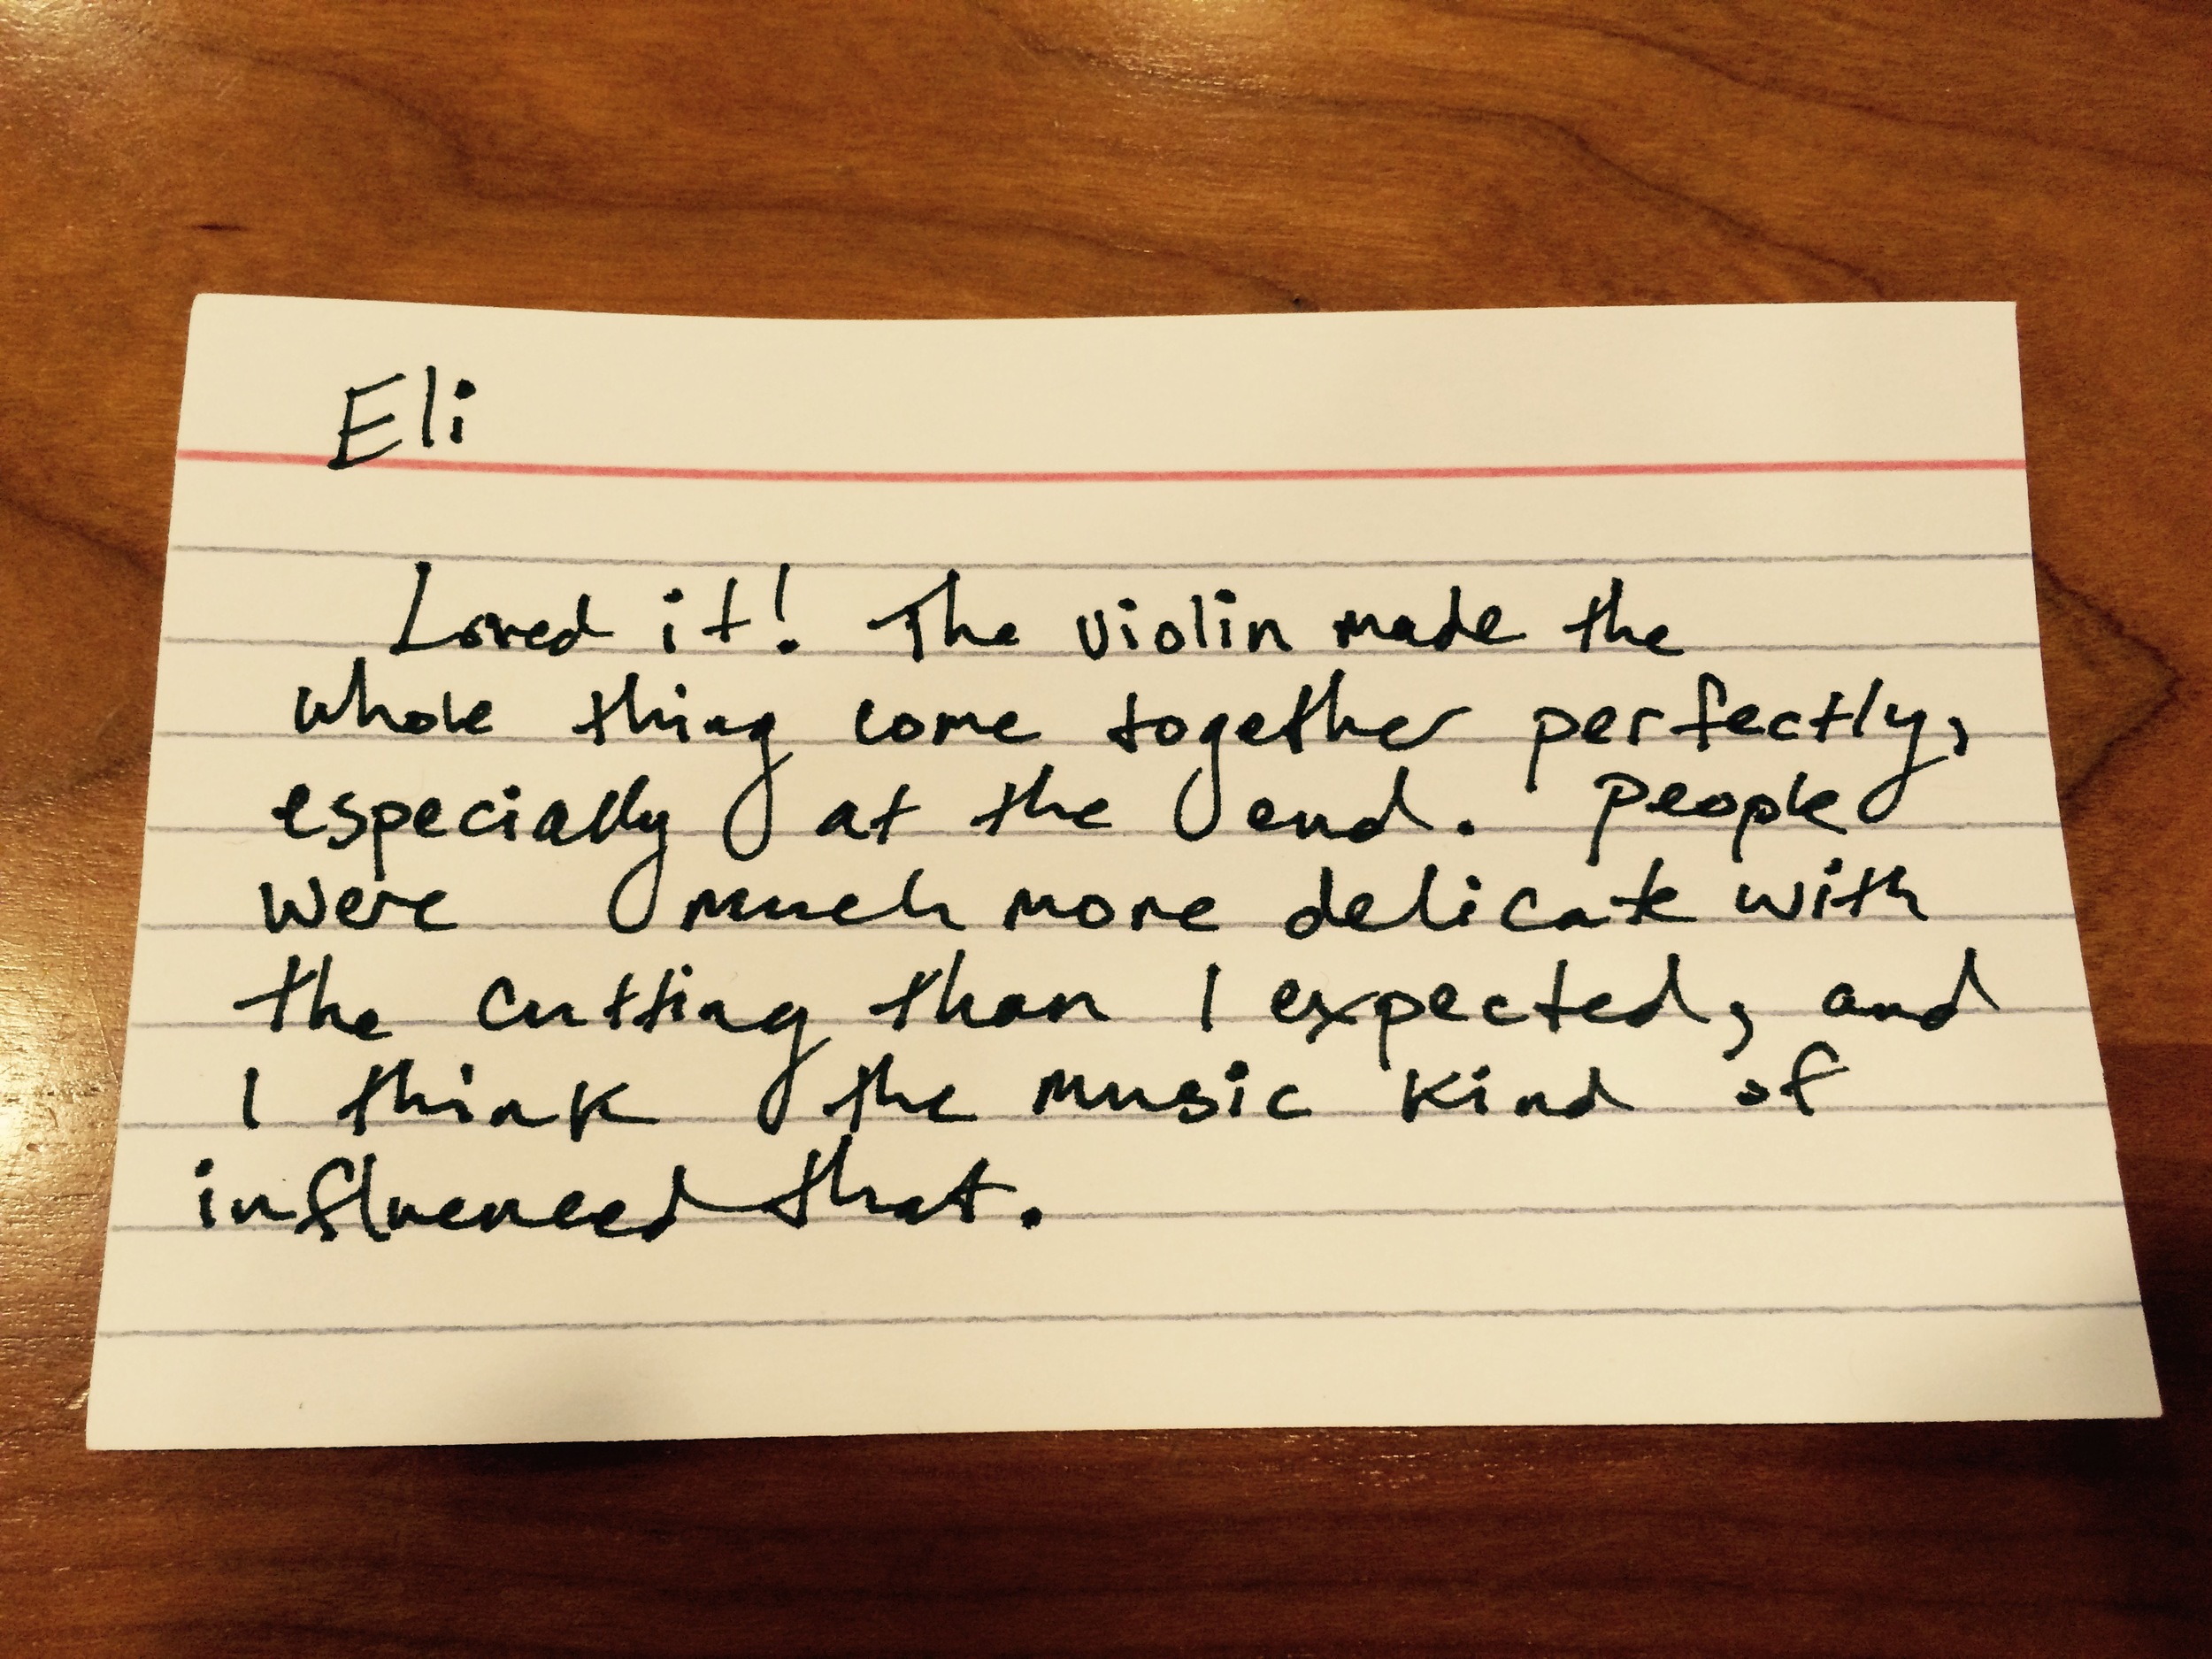 Eli
Loved it! The violin made the
whole thing come together perfectly,
especially at the end. People
were much more delicate with
the cutting than I expected, and
I think the music kind of
influenced that.